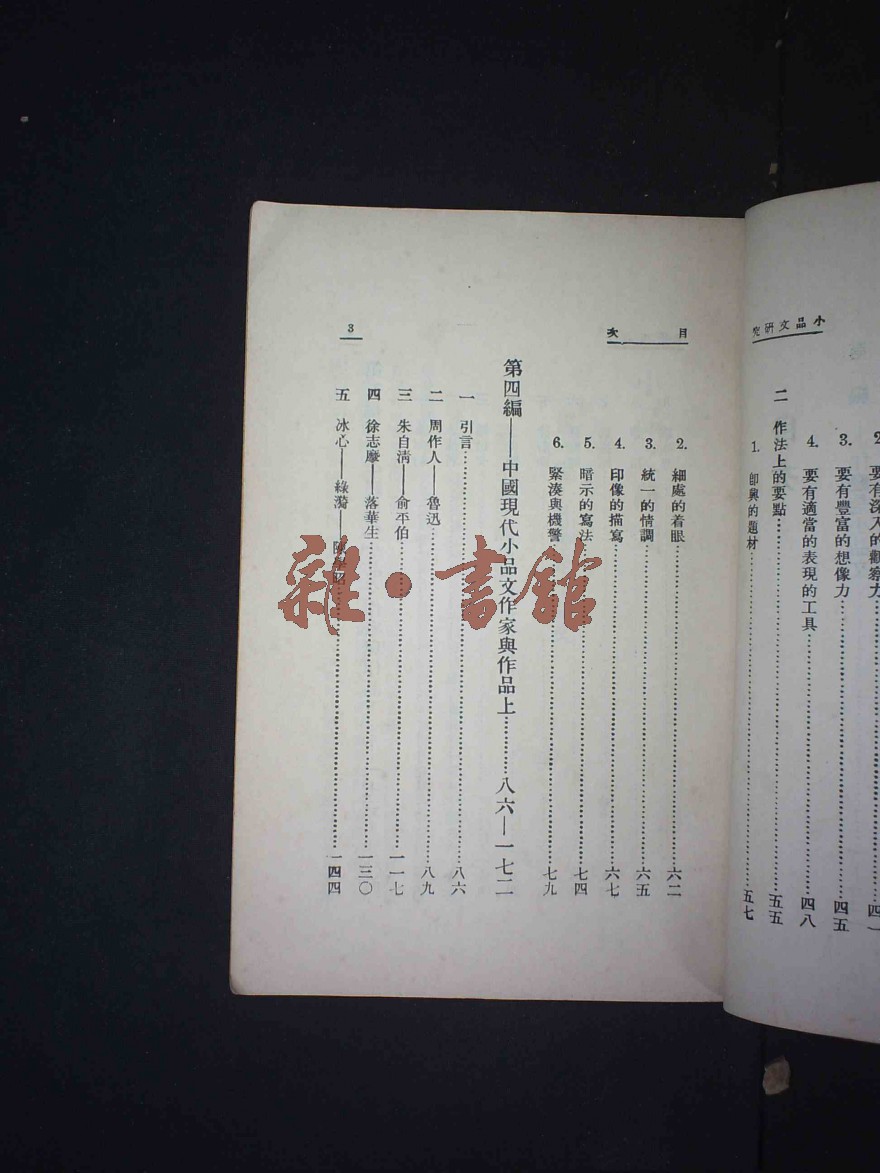 小品文硏究
2. 要有深入的觀察力……四一
3. 要有豐富的想像力……四五
4. 要有適當的表現的工具……四八
二 作法上的要點……五五
1. 卽興的題材……五七
目次
2. 細處的着眼……六二
3. 統一的情調……六五
4. 印像的描寫……六七
5. 暗示的寫法……七四
6. 緊湊與機警……七九
第四編——中國現代小品文作家與作品上……八六—一七二
一 引言……八六
二 周作人——魯迅……八九
三 朱自淸——俞平伯……一一七
四 徐志摩——落華生……一三〇
五 冰心——綠漪——陳學昭……一四四
3
雜·書館